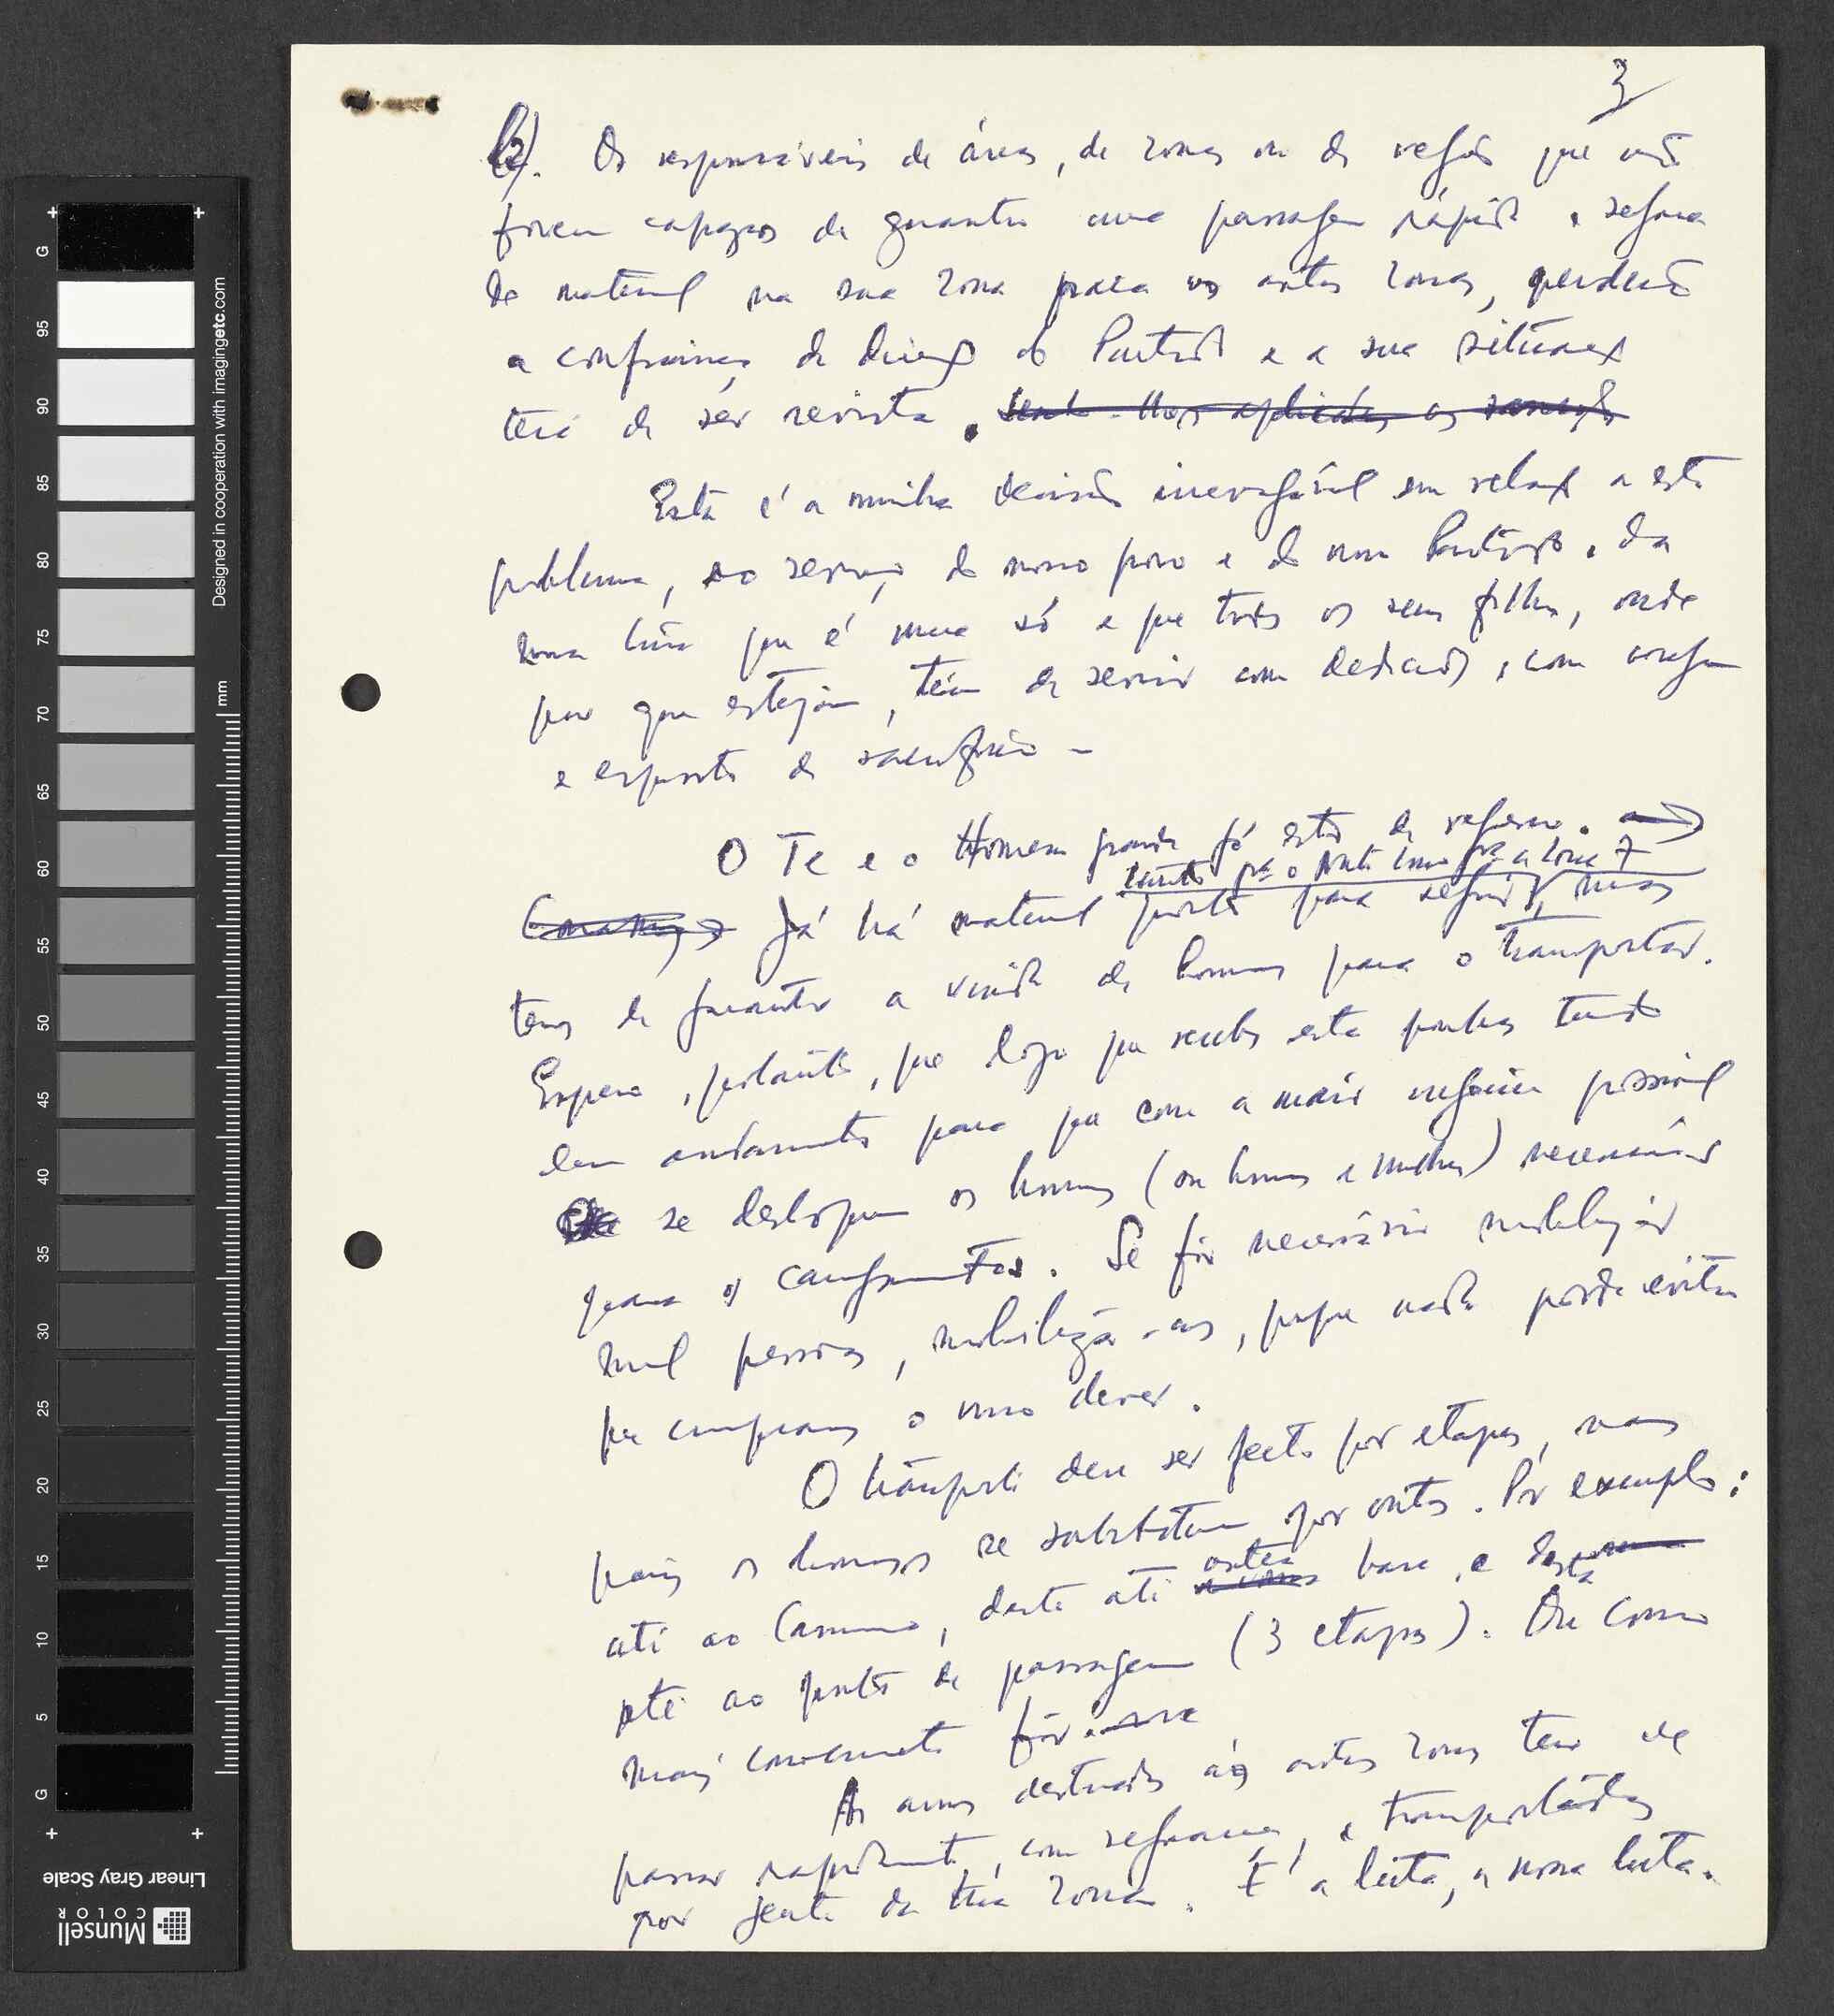 3
b). Os responsáveis de área, de zonas ou de região que não
forem capazes de garantir uma passagem rápida e segura
de material na sua zona para as outras zonas, perderão
a confiança da direcção do Partido e a sua situação
terá de ser revista.
Esta é a minha decisão irrevogável em relação a este
problema, ao serviço do nosso povo e do nosso Partido, da
nossa luta que é uma só e que todos os seus filhos, onde
quer que estejam, têm de servir com dedicação, com coragem
e espírito de sacrifício -
O Te e o Homem grande já estão de regresso.
tanto pª o Norte como pª a zona 7
Já há material pronto para seguir, mas
temos de garantir a vinda de homens para o transportar.
Espero, portanto, que logo que recebas esta ponhas tudo
em andamento para que com a maior urgência possível
se desloquem os homens (ou homens e mulheres) necessários
para os carregamentos. Se fôr necessário mobilizar
mil pessoas, mobilizá-as, porque nada pode evitar
que cumpramos o nosso dever.
O transporte deve ser feito por etapas, mas
pois os homens se substituem por outros. Por exemplo:
até ao Camuno, deste até outra base, e desta
até ao ponto de passagem (3 etapas). Ou como
mais conveniente fôr.
As armas destinadas às outras zonas tem de
passar rapidamente, com segurança, e transportadas
por gente da tua zona. É a luta, a nossa luta.
Designed in cooperation with imagingetc.com
mm
G
95
90
85
80
75
70
65
60
55
50
45
40
35
30
25
20
15
10
5
G
Linear Gray Scale
Munsell
COLOR